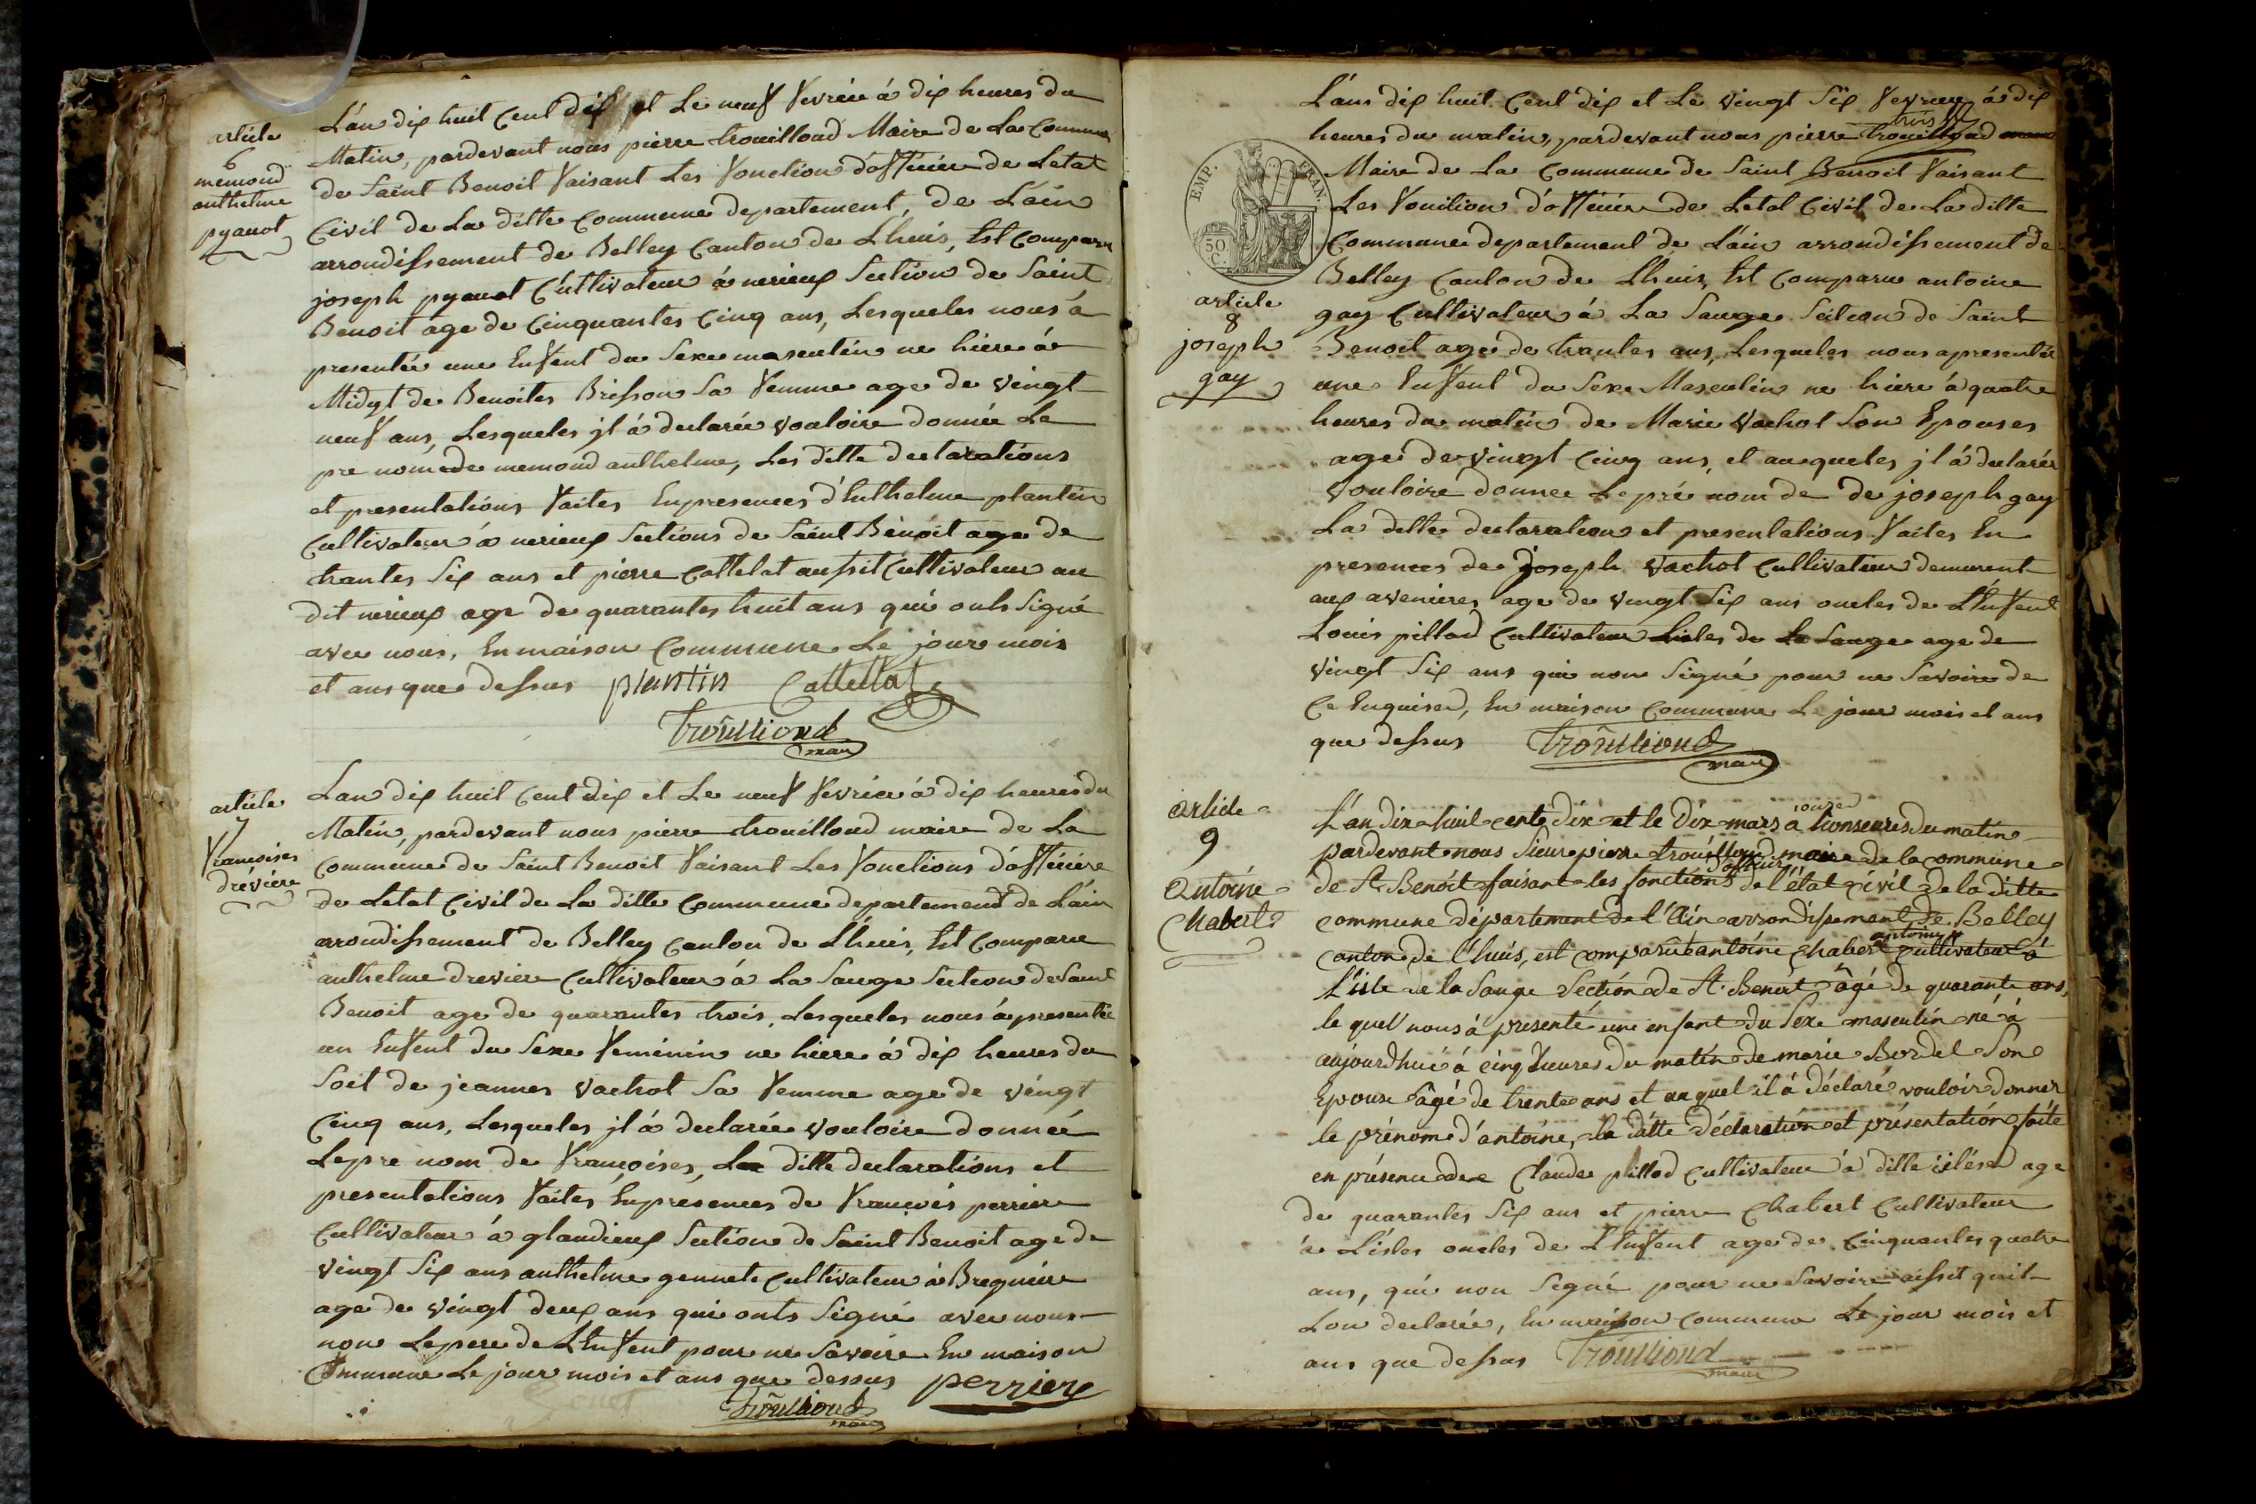 article
6
memond
anthelme
pyanot
L'an dix huit Cent dix et Le neuf Fevrière à dix heures du
Matin, pardevant nous pierre trouilloud Maire de La Commune
de Saint Benoit Faisant Les Fonction d'officiére de Letat
Civil de La ditte Commune departement, de L'ain
arrondissement de Belley Canton de Lhuis, Est Comparu
joseph pyanot Cultivateur à nerieux Section de Saint
Benoit age de Cinquantes Cinq ans, Lesqueles nous à
presentée une Enfent du Sexe masculin ne hiere à
Midyt de Benoites Brisson Sa Femme age de vingt
neuf ans, Lesqueles jl à declarée vouloire donnée Le
pre nom de memond anthelme, Les ditte declarations
et presentations Faites Enpresences d'Enthelme plantin
Cultivateur à nerieux Sections de Saint Benoit age de
trantes Six ans et pierre Cattelat aussit Cultivateur au
dit nerieux age de quarantes huit ans qui onts Signé
avec nous, En maison Commune Le jour mois
et ans que dessus plantin Cattellat
Trouilloud
maire
article
7
Françoises
dréviére
L'an dix huit Cent dix et Le neuf Fevrier à dix heures du
Matin, pardevant nous pierre trouilloud maire de La
Commune de Saint Benoit Faisant Les Fonctions d'officiére
de Letat Civil de La ditte Commune departement de L'ain
arrondissement de Belley Canton de Lhuis, Est Comparu
anthelme dreviere Cultivateur à La Sauge Section de Saint
Benoit age de quarantes trois, Lesqueles nous à presentée
un Enfent du Sexe Feminin ne hiere à dix heures du
Soit de jeannes vachot Sa Femme age de vingt
Cinq ans, Lesqueles jl à declarée vouloire donnée
Lepre nom de Françoises, La ditte declarations et
presentations Faites Enpresences de François perriere
Cultivateur à glandieux Section de Saint Benoit age de
vingt Six ans anthelme gennet Cultivateur à Bregniere
age de vingt deux ans qui onts Signé avec nous
non Lepere de LEnfent pour ne Savoire En maison
Commune Le jour mois et ans que dessus perriere
Trouilloud
maire
TIMP. FRAN.
50
C.
article
8
joseph
gay
L'ans dix huit Cent dix et Le vingt Six Fevrier à dix
trois
heures du matin, pardevant nous pierre trouilloud
Maire de La Commune de Saint Benoit Faisant
Les Fonction d'officiére de Letat Civil de La ditte
Commune departement de L'ain arrondissement de
Belley Canton de Lhuis, Est Comparu antoine
gay Cultivateur à La Sauge Section de Saint
Benoit age de trantes ans, Lesqueles nous a presentée
une Enfent du Sexe Masculin ne hiere à quatre
heures du matin de Marie vachot Son Epouses
age de vingt Cinq ans, et auxqueles jl à declarée
vouloire donnee Le pré nom de de joseph gay
La ditte declaration et presentations Faites En
presences de Joseph vachot Cultivateur demurent
aux avenieres age de vingt Six ans oncles de LEnfent
Louis pillod Cultivateur Lisles de La Sauge age de
vingt Six ans qui non Signé pour ne Savoire de
Ce Enquised, En maison Commune Le jour mois et ans
que dessus Trouilloud
maire
article
9
Antoine
Chabert
L'an dix-huit-cent dix et le Dix mars à onze heures du matin
pardevant nous Sieur pierre trouilloud maire de la commune
d'officier
de St Benoît faisant les fonctions de l'état civil de la ditte
commune département de l'Ain arrondissement de Belley
canton de l'huis, est comparu antoine Chabert cultivateur à
L'isle de la Sauge Section de St. Benoit âgé de quarante ans,
le quel nous à présenté une enfant du Sexe masculin né à
aujourdhui à cinq heures du matin de marie Bordel Son
Epouse âgé de trente ans et au quel il à déclaré vouloir donner
le prénom d'antoine, la ditte déclaration et présentation faite
en présence de Claude pillod Cultivateur à ditte age
de quarantes Six ans et pierre Chabert Cultivateur
à L'isles oncles de L'Enfent age de Cinquantes quatre
ans, qui non Signé pour ne Savoire aissit quil
Lon declarée, En maison Commune Le jour mois et
ans que dessus Trouilloud
maire